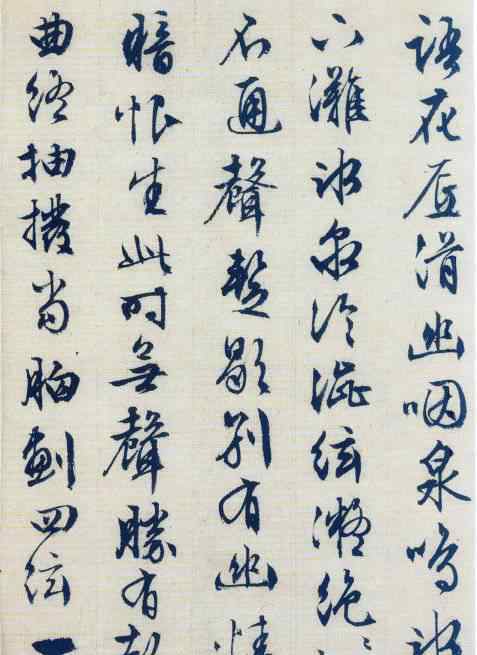 語花底滑幽咽泉鳴冰
下灘冰泉冷澀絃凝絕
不通聲暫歇別有幽情
暗恨生此時無聲勝有
曲終抽撥當胸劃四絃一